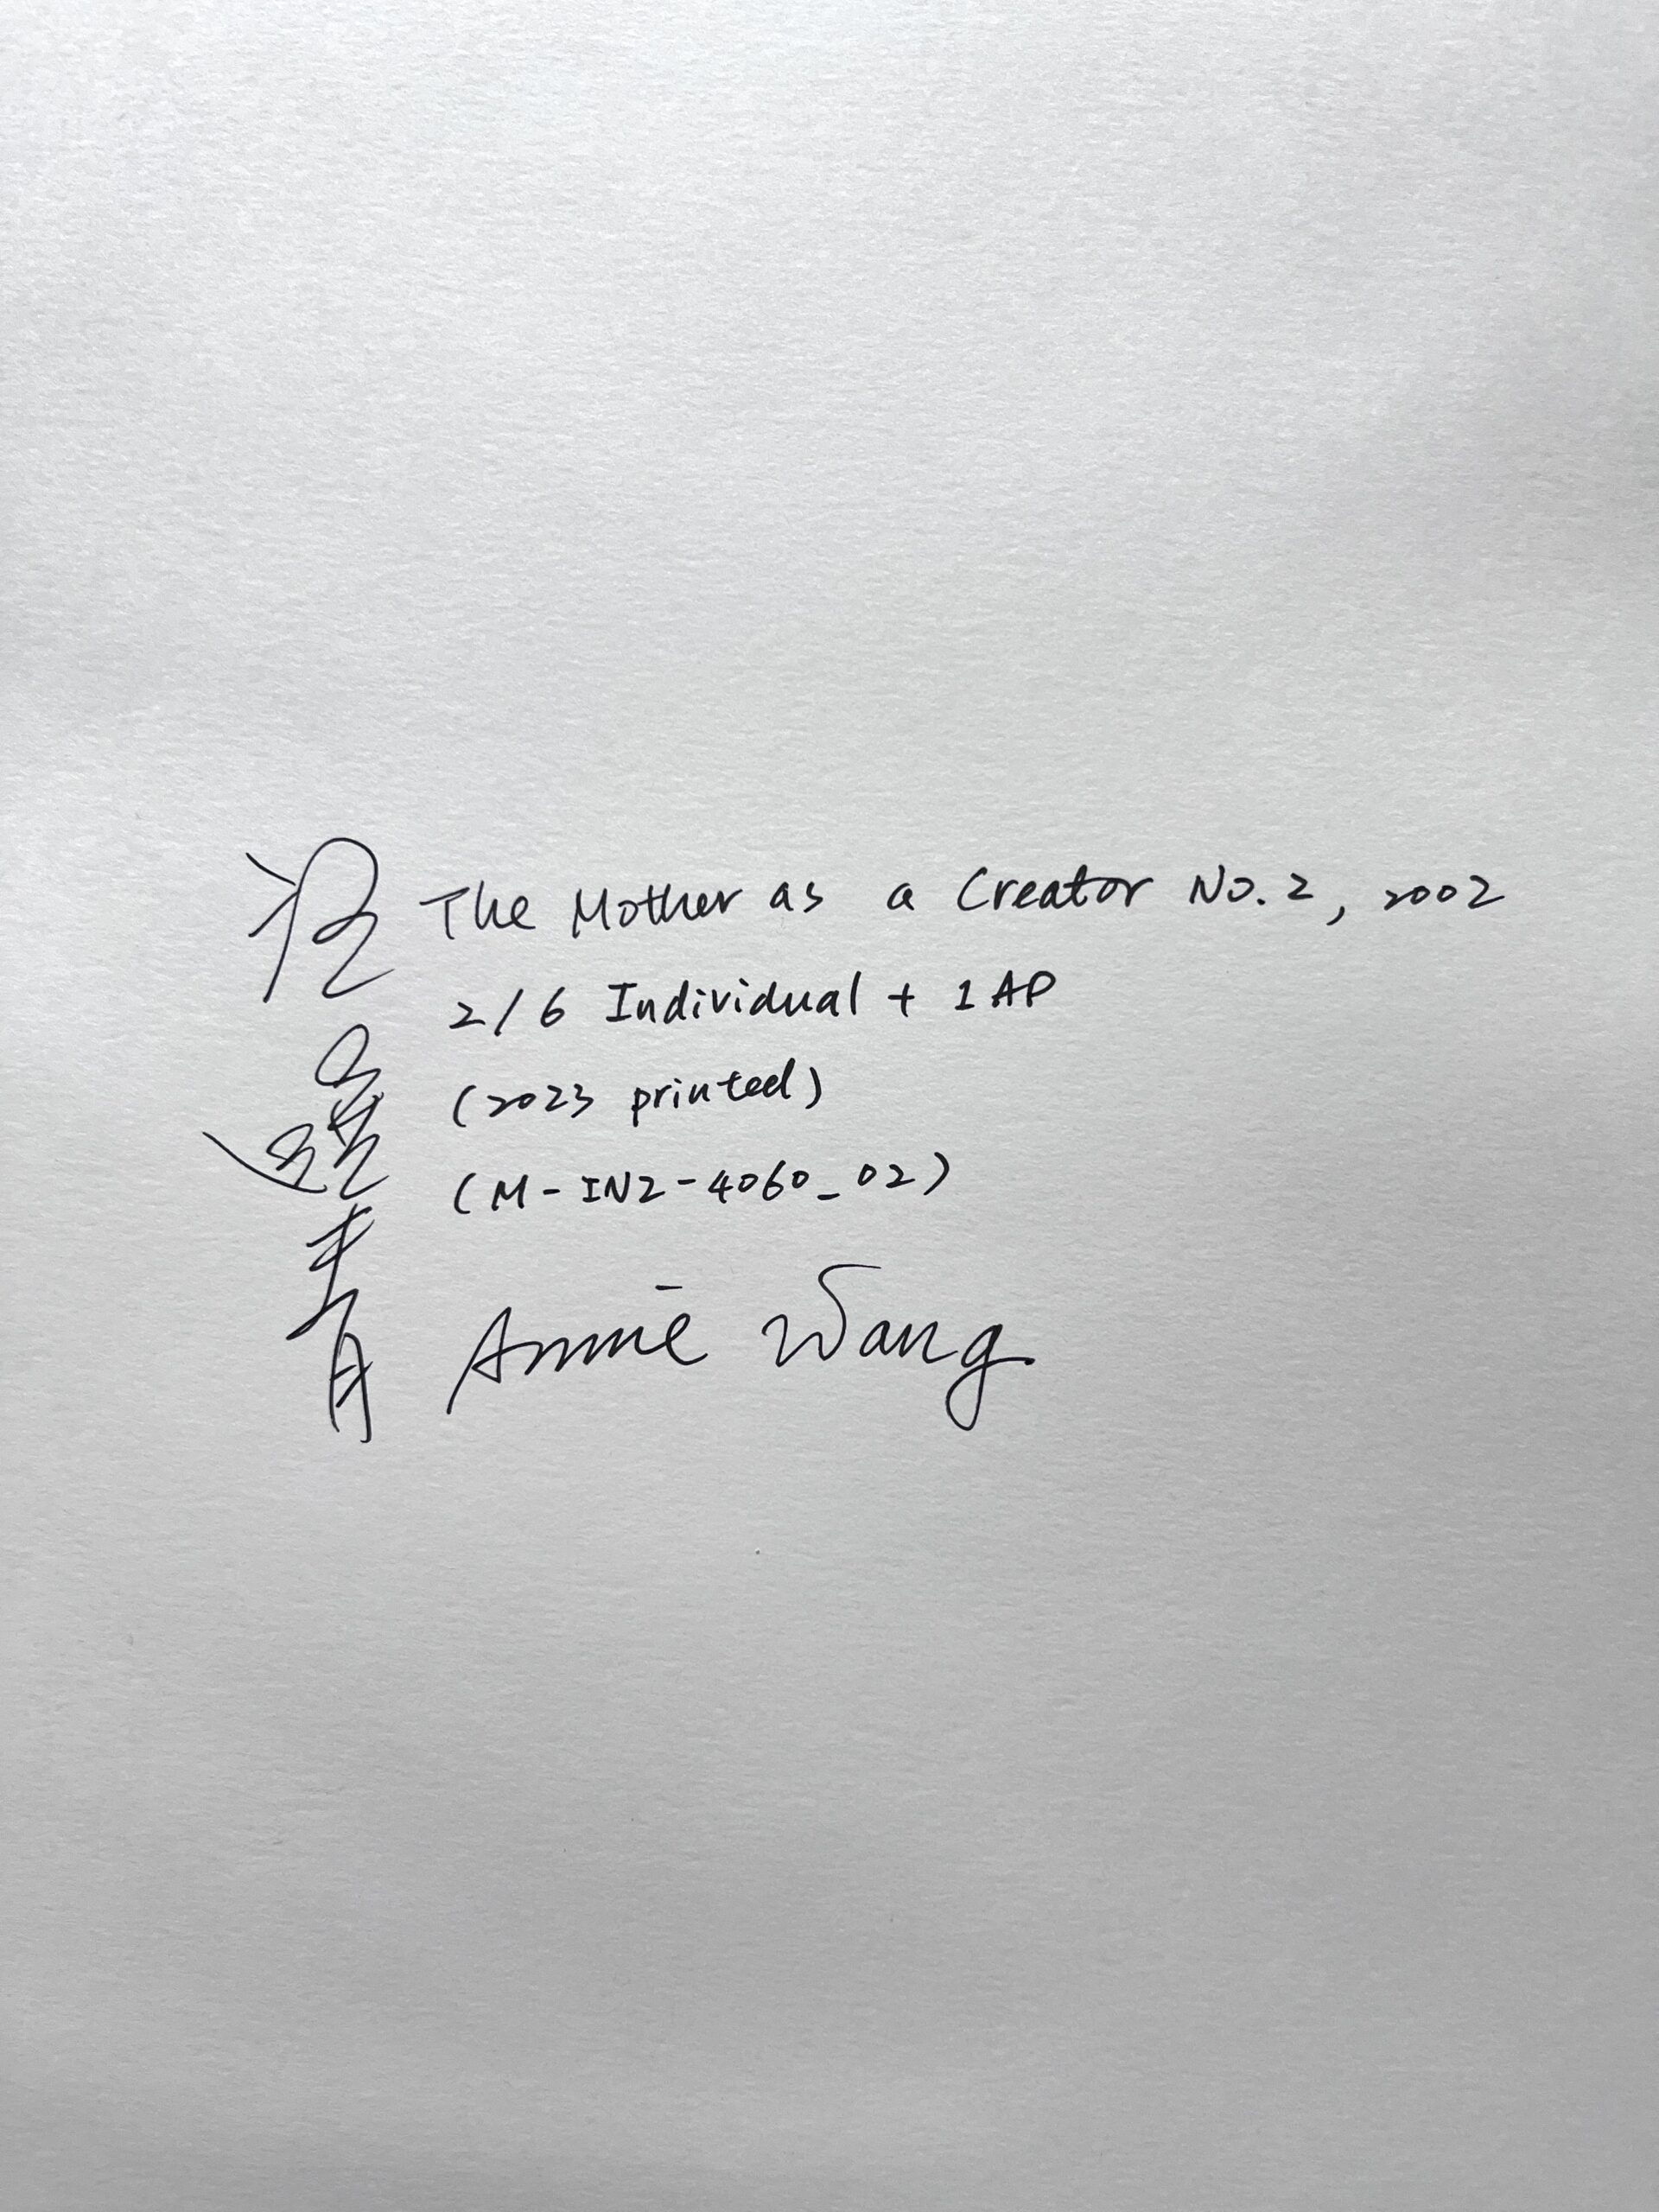 The Mother as a Creator No. 2, 2002
2/6 Individual + 1 AP
(2023 printed)
(M-IN2-4060_02)
Annie Wang